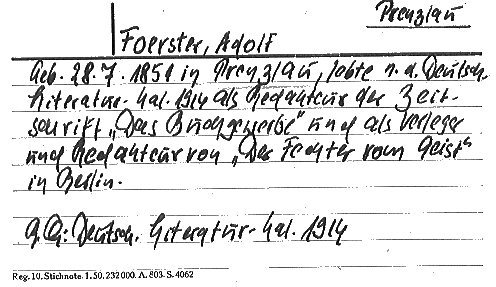 Prenzlau
Foerster, Adolf
Geb. 28.7.1851 in Prenzlau, lebte n. d. Deutsch.
Literatur-Kal. 1914 als Redakteur der Zeit-
schrift „Das Buchgewerbe" und als Verleger
und Redakteur von „Der Fechter vom Geist"
in Berlin.
Q.: Deutsch. Literatur-Kal. 1914
Reg. 10. Stichnote. 1. 50. 232000. A. 803. S. 4062